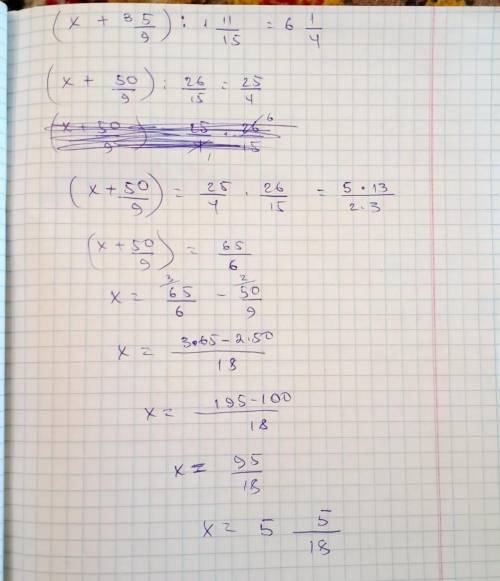 (x + 5 5/9) : 1 11/15 = 6 1/4
(x + 50/9) : 26/15 = 25/4
(x + 50/9) 25/4 · 26/15
(x + 50/9) = 25/4 · 26/15 = 5 · 13/2 · 3
(x + 50/9) = 65/6
x = 65/6 - 50/9
x = 3·65 - 2·50/18
x = 195 - 100/18
x = 95/18
x = 5 5/18